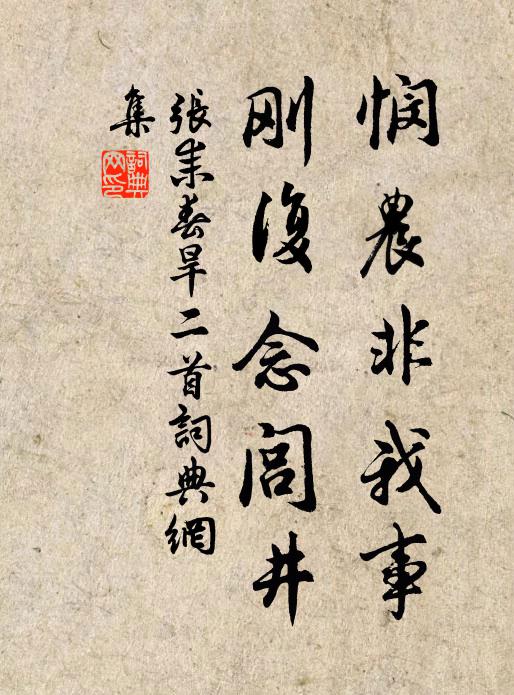 悯農非我事
刚復念閭井
張耒春旱二首詞典網
集
詞典
网印